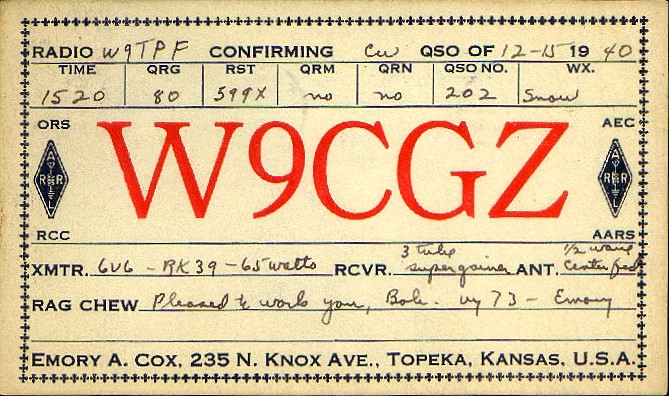 RADIO W9TPF CONFIRMING CW QSO OF 12-15 1940
TIME QRG RST QRM QRN QSO NO. WX.
1520 80 599X no no 202 Snow
ORS AEC
W9CGZ
ARRL ARRL
RCC AARS
XMTR. 6V6 - RK39 - 65 watts RCVR. 3 tube supergainer ANT. 1/2 wave center fed
RAG CHEW Pleased to work you, Bob. vy 73 - Emory
EMORY A. COX, 235 N. KNOX AVE., TOPEKA, KANSAS, U.S.A.